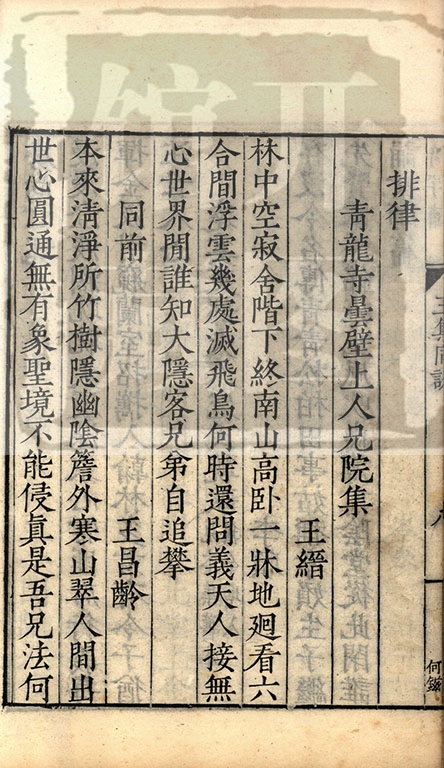 排律
青龍寺曇壁上人兄院集
王縉
林中空寂舍階下終南山高卧一牀地廻看六
合間浮雲幾處滅飛鳥何時還問義天人接無
心世界閒誰知大隱客兄弟自追攀
同前
王昌齡
本來清淨所竹樹隱幽陰簷外寒山翠人間出
世心圓通無有象聖境不能侵真是吾兄法何